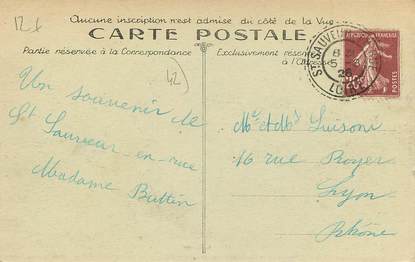 12 x
Aucune inscription n'est admise du côté de la Vue
CARTE POSTALE
Partie réservée à la Correspondance
Exclusivement réser
à l'A
42
Un souvenir de
St Sauveur-en-rue
Madame Buttin
Mr et Mme Luisoni
16 rue Royer
Lyon
Rhône
St SAUVEU
6
5
26
LOIRE
POSTES